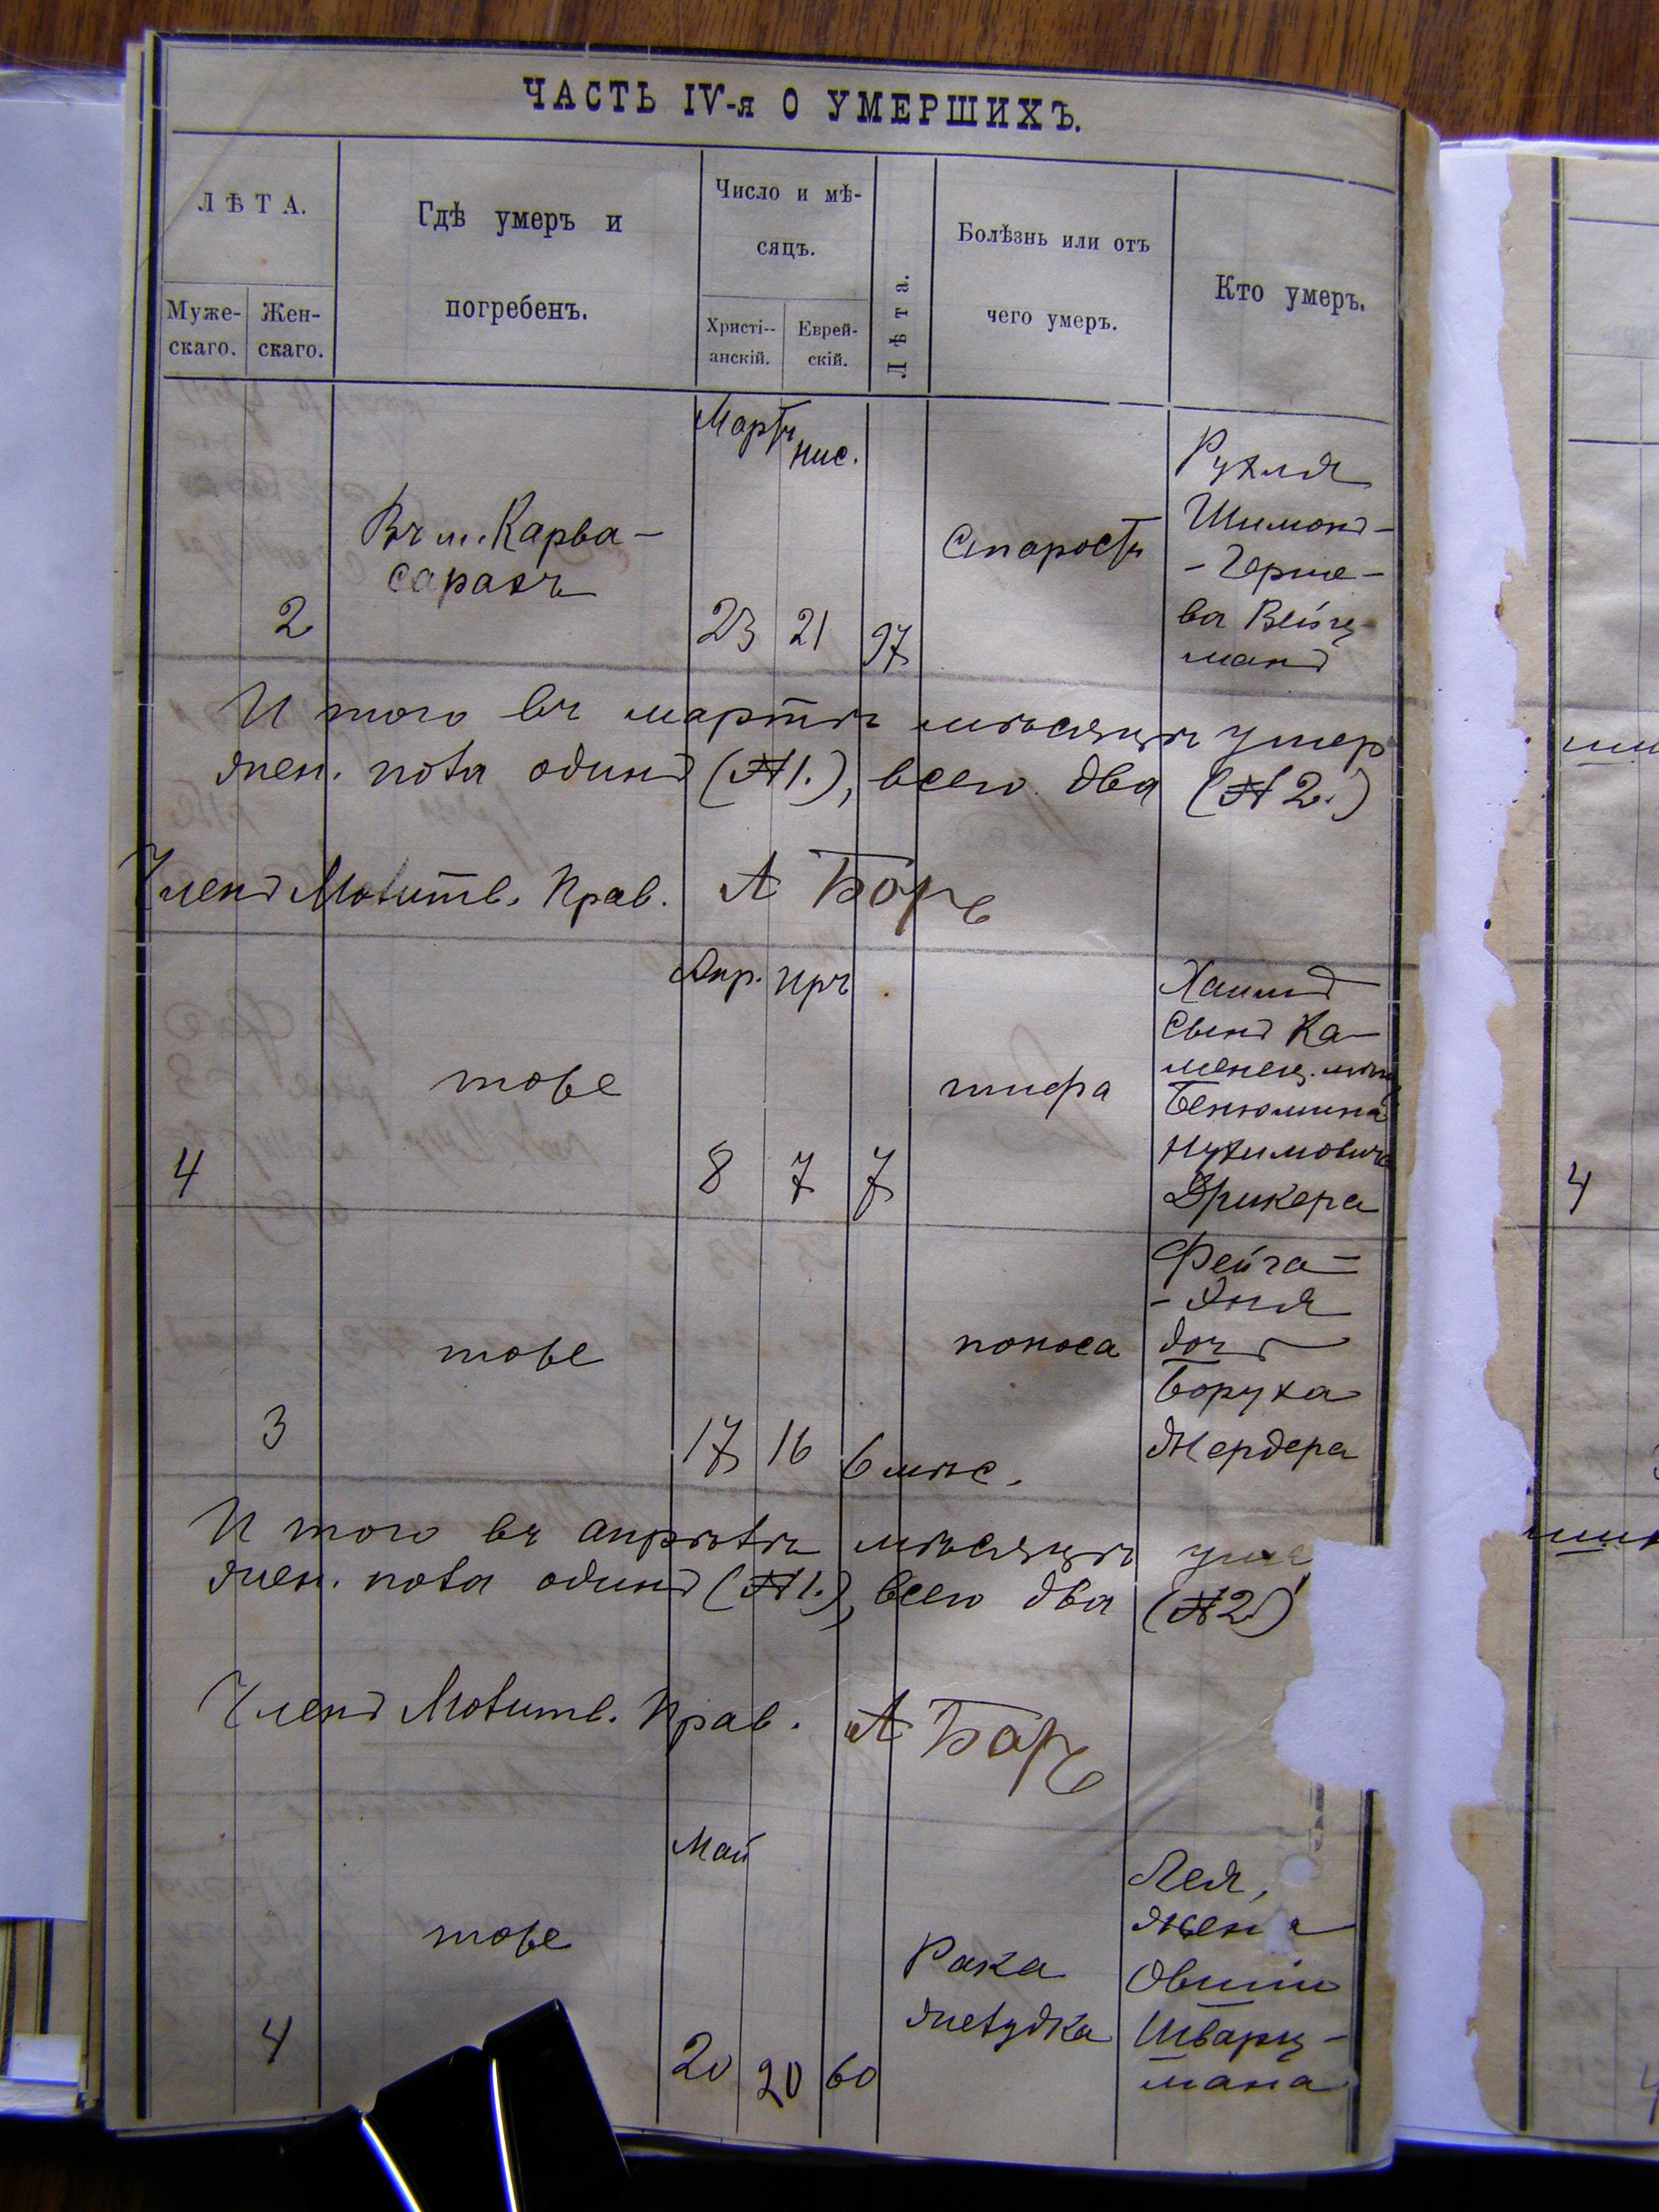 ЧАСТЬ IV-я О УМЕРШИХЪ.
ЛѢТА.
Муже-
скаго.
Жен-
скаго.
Гдѣ умеръ и
погребенъ.
Число и мѣ-
сяцъ.
Христі--
анскій.
Еврей-
скій.
Лѣта.
Болѣзнь или отъ
чего умеръ.
Кто умеръ.
Мартъ
нис.
2
Въ м. Карва-
сарахъ
23
21
97
Старость
Рухля
Шимонъ-
-Герше-
ва Вейц-
манъ
И того въ мартѣ мѣсяцѣ умер
жен. пола одинъ (№ 1.), всего два (№ 2.)
Членъ Молитв. Прав. А Боръ
Апр.
Ирѣ
4
тоже
8
7
7
тифа
Хаимъ
сынъ Ка-
менец. мѣщ
Бенюмина
Нухимовича
Дрикера
3
тоже
17
16
6 мѣс.
поноса
Фейга-
-Эня
дочь
Боруха
Жердера
И того въ апрѣлѣ мѣсяцѣ уме
жен. пола одинъ (№ 1.), всего два (№ 2)
Членъ Молитв. Прав. А Боръ
Май
4
тоже
20
20
60
Рака
желудка
Лея,
жена
Овшіи
Шварц-
мана
4